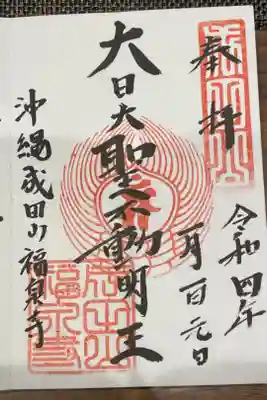 奉拝
令和四年
一月一日元日
大日大聖不動明王
沖縄成田山福泉寺